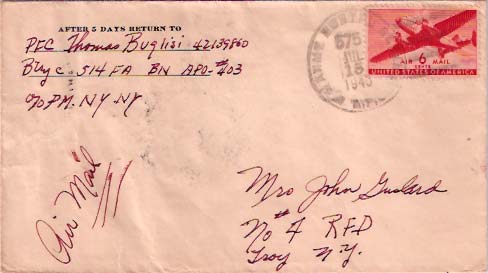 AFTER 5 DAYS RETURN TO
PFC Thomas Buglisi 42139860
Btry C 514 FA BN APO #403
c/o PM. NY NY
JUL
1945
AIR 6 MAIL
CENTS
UNITED STATES OF AMERICA
Air Mail
Mrs John Gulard
No # 4 RFD
Troy N.Y.